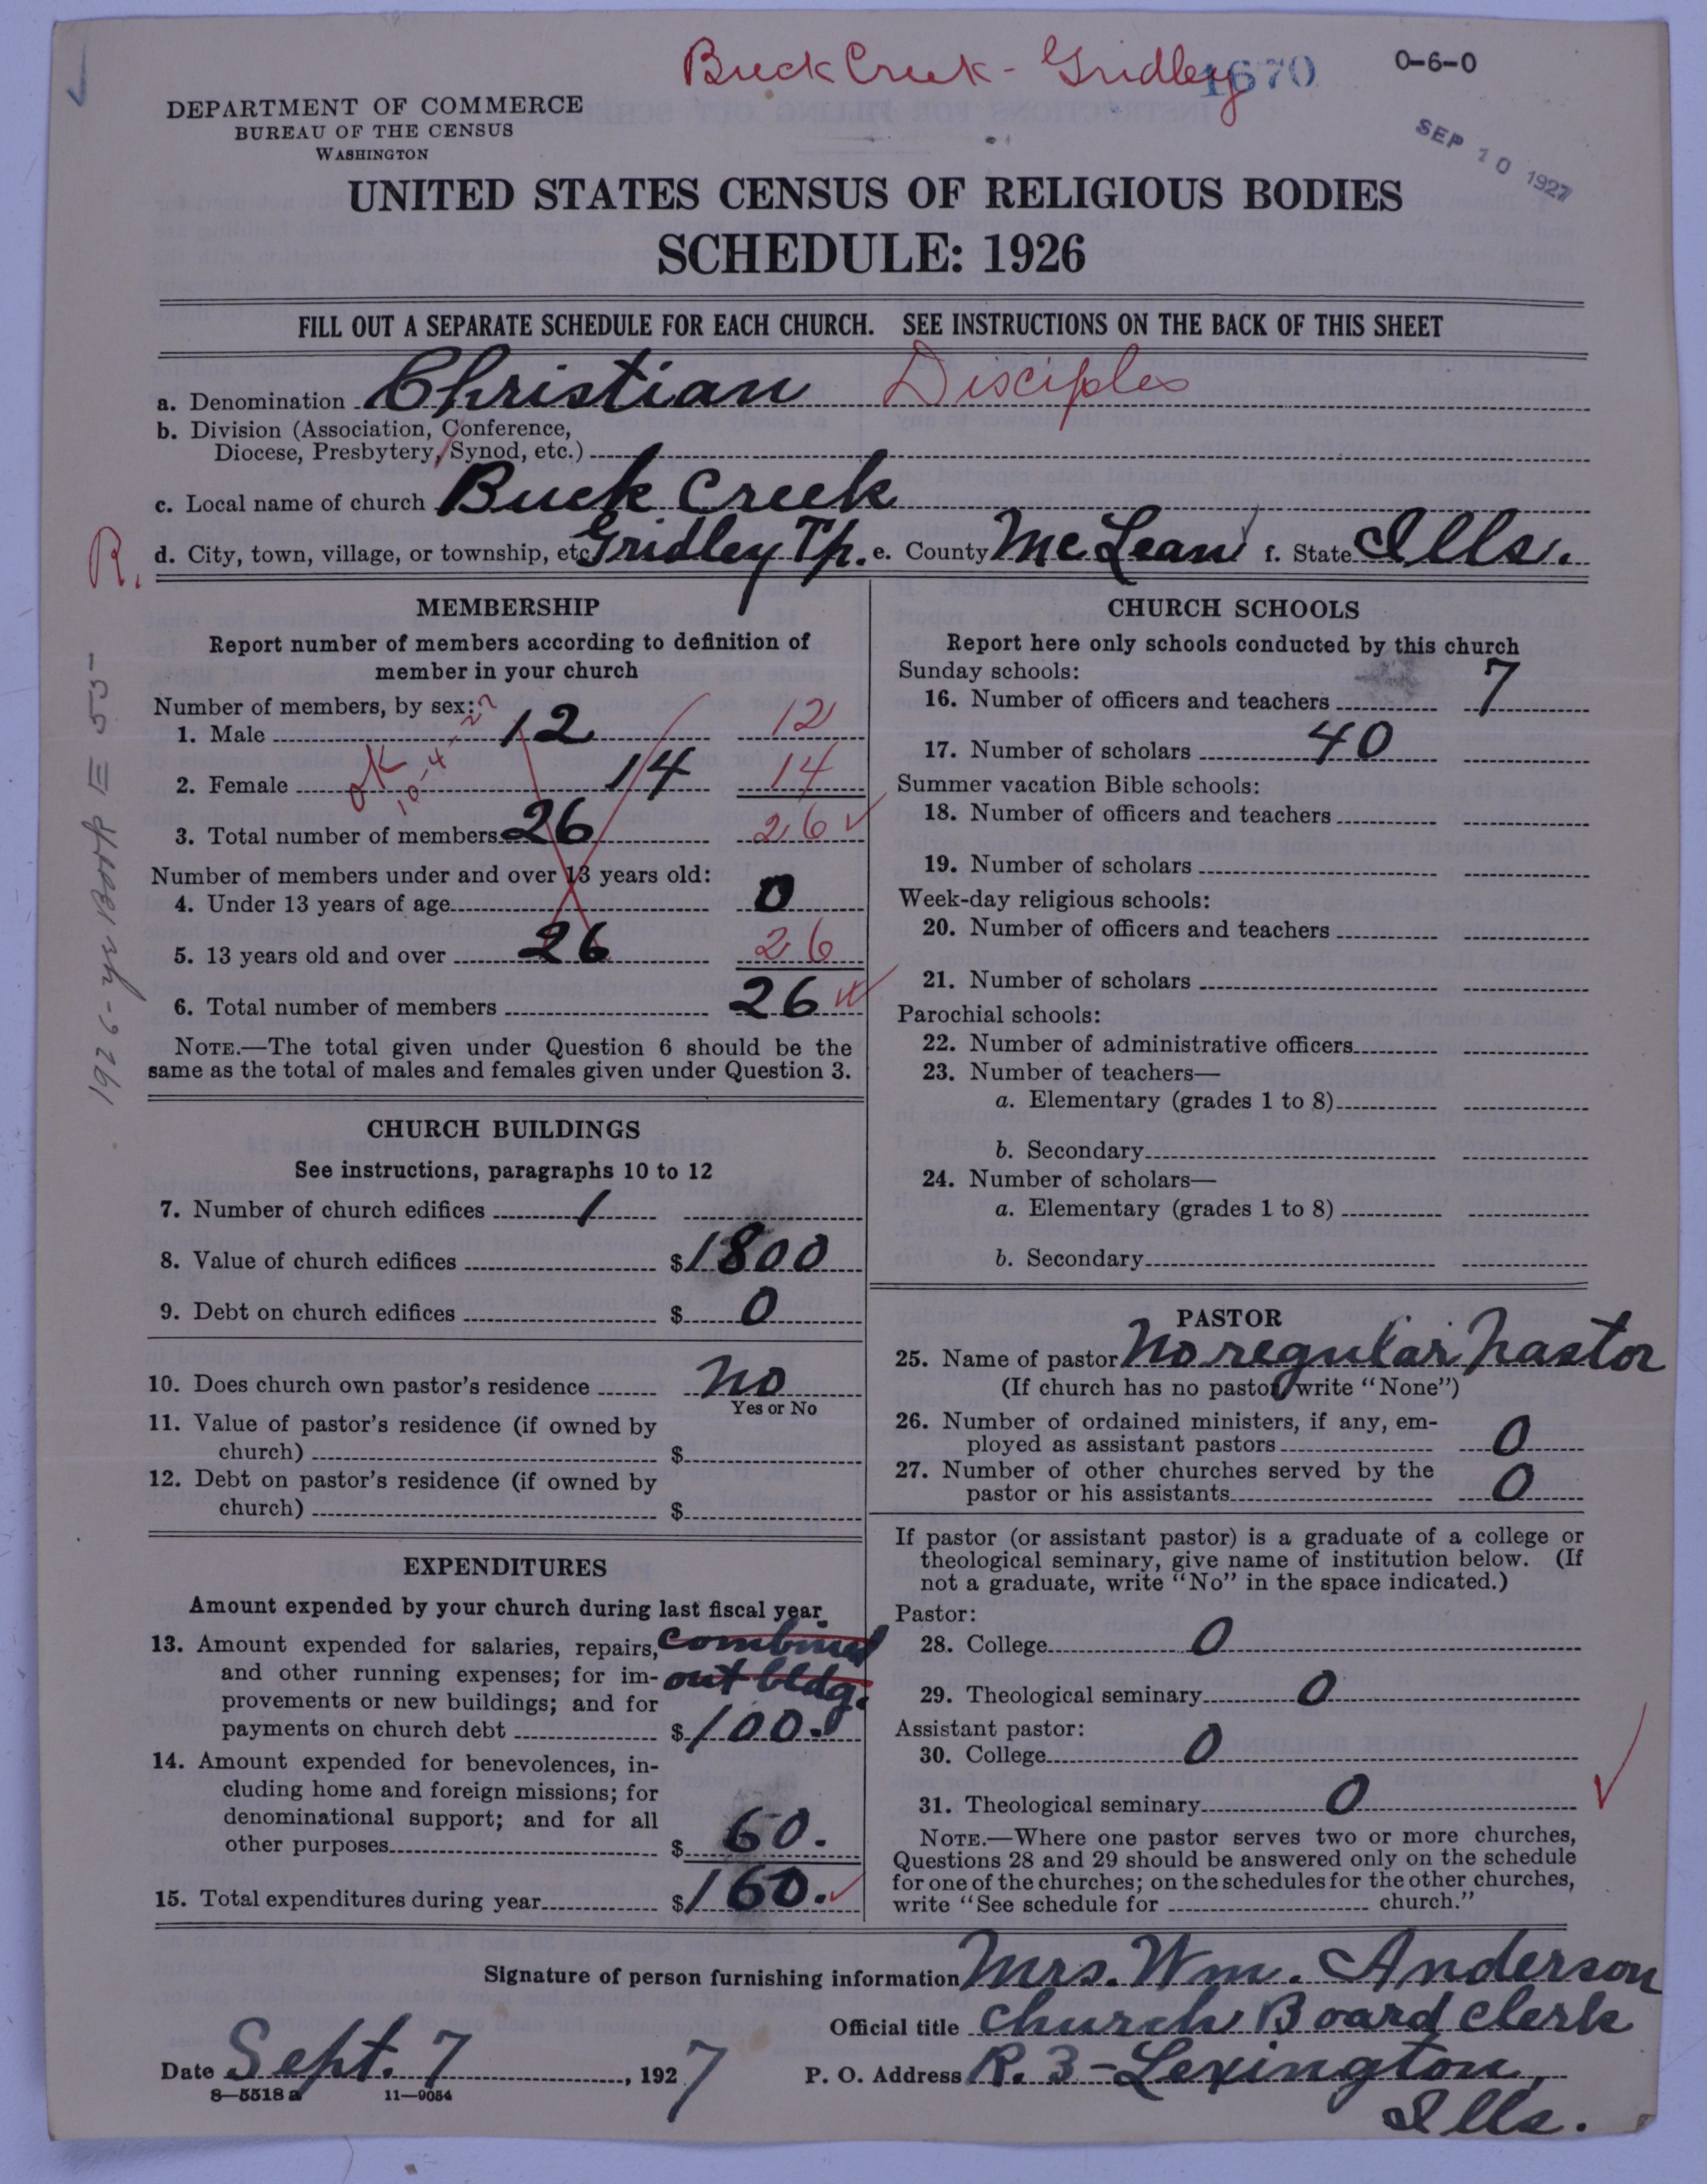 Buck Creek - Gridley
1670
0-6-0
SEP 10 1927
DEPARTMENT OF COMMERCE
BUREAU OF THE CENSUS
WASHINGTON
UNITED STATES CENSUS OF RELIGIOUS BODIES
SCHEDULE: 1926
FILL OUT A SEPARATE SCHEDULE FOR EACH CHURCH. SEE INSTRUCTIONS ON THE BACK OF THIS SHEET
a. Denomination Christian Disciples
b. Division (Association, Conference,
Diocese, Presbytery, Synod, etc.)
c. Local name of church Buck Creek
R. d. City, town, village, or township, etc. Gridley Tp. e. County McLean f. State Ills.
1926 - yr Book E 55-
MEMBERSHIP
Report number of members according to definition of
member in your church
Number of members, by sex:
1. Male 12 12
2. Female 14 14
OK
10-4-27
3. Total number of members 26 26
Number of members under and over 13 years old:
4. Under 13 years of age 0
5. 13 years old and over 26 26
6. Total number of members 26
NOTE.—The total given under Question 6 should be the
same as the total of males and females given under Question 3.
CHURCH BUILDINGS
See instructions, paragraphs 10 to 12
7. Number of church edifices 1
8. Value of church edifices $1800
9. Debt on church edifices $ 0
10. Does church own pastor's residence No
Yes or No
11. Value of pastor's residence (if owned by
church) $
12. Debt on pastor's residence (if owned by
church) $
EXPENDITURES
Amount expended by your church during last fiscal year
13. Amount expended for salaries, repairs, combined
and other running expenses; for im- out bldg.
provements or new buildings; and for
payments on church debt $100.
14. Amount expended for benevolences, in-
cluding home and foreign missions; for
denominational support; and for all
other purposes $ 60.
15. Total expenditures during year $160.
CHURCH SCHOOLS
Report here only schools conducted by this church
Sunday schools:
16. Number of officers and teachers 7
17. Number of scholars 40
Summer vacation Bible schools:
18. Number of officers and teachers
19. Number of scholars
Week-day religious schools:
20. Number of officers and teachers
21. Number of scholars
Parochial schools:
22. Number of administrative officers
23. Number of teachers—
a. Elementary (grades 1 to 8)
b. Secondary
24. Number of scholars—
a. Elementary (grades 1 to 8)
b. Secondary
PASTOR
25. Name of pastor No regular pastor
(If church has no pastor, write "None")
26. Number of ordained ministers, if any, em-
ployed as assistant pastors 0
27. Number of other churches served by the
pastor or his assistants 0
If pastor (or assistant pastor) is a graduate of a college or
theological seminary, give name of institution below. (If
not a graduate, write "No" in the space indicated.)
Pastor:
28. College 0
29. Theological seminary 0
Assistant pastor:
30. College 0
31. Theological seminary 0
NOTE.—Where one pastor serves two or more churches,
Questions 28 and 29 should be answered only on the schedule
for one of the churches; on the schedules for the other churches,
write "See schedule for church."
Signature of person furnishing information Mrs. Wm. Anderson
Official title Church Board Clerk
Date Sept. 7, 1927 P. O. Address R. 3 - Lexington,
Ills.
8—5518 a 11—9054